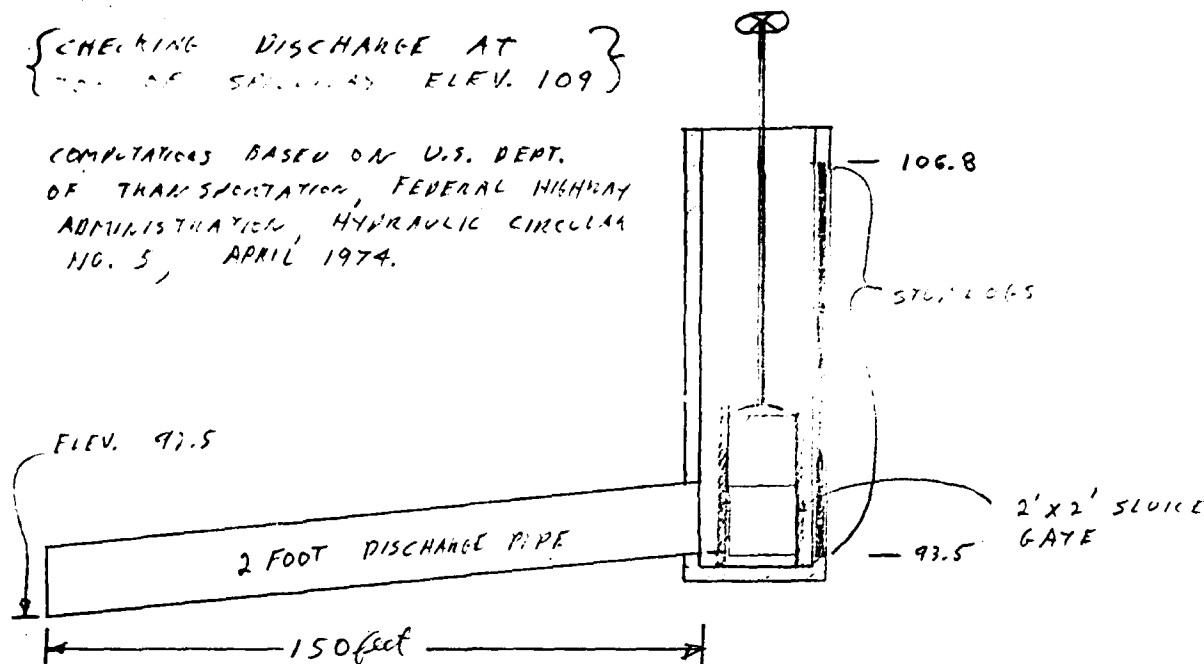 {CHECKING DISCHARGE AT
OF ELEV. 109}
COMPUTATIONS BASED ON U.S. DEPT.
OF TRANSPORTATION, FEDERAL HIGHWAY
ADMINISTRATION, HYDRAULIC CIRCULAR
NO. 5, APRIL 1974.
106.8
STOP LOGS
ELEV.
2 FOOT DISCHARGE PIPE
2' x 2' SLUICE
GATE
93.5
150 feet